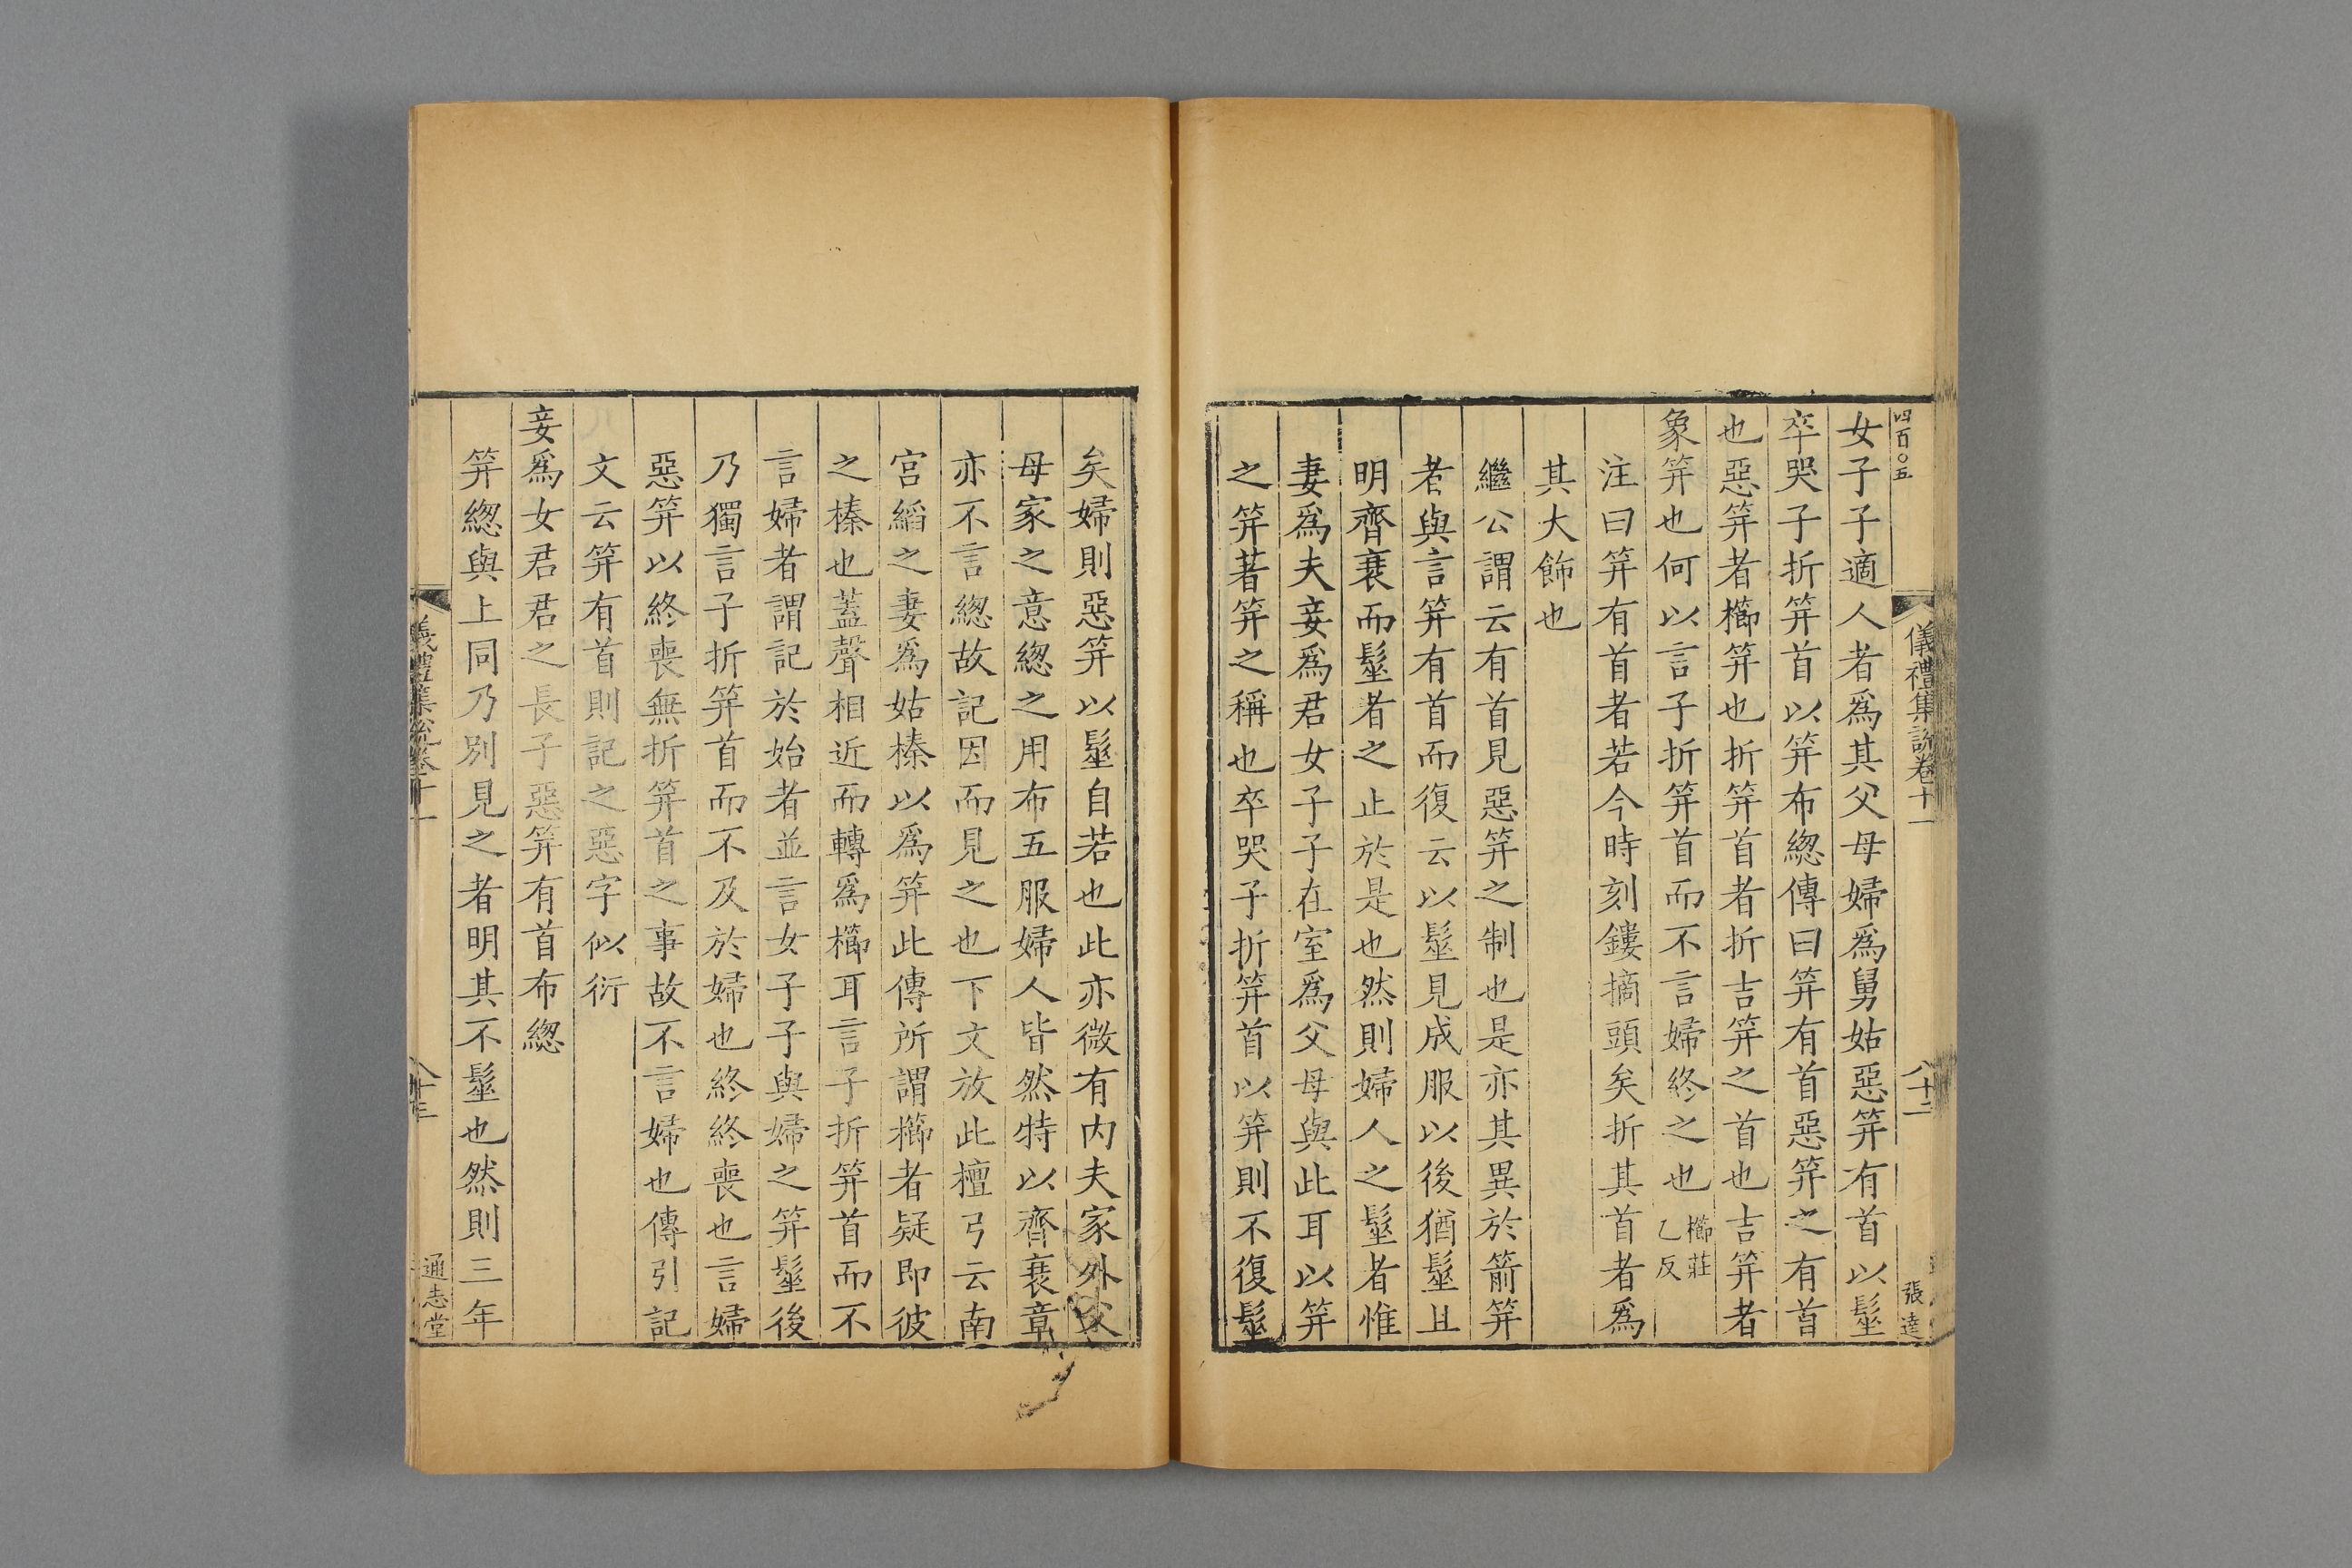 四百〇五
儀禮集説卷十一
八十二
張達
女子子適人者爲其父母婦爲舅姑惡筓有首以髽
卒哭子折筓首以筓布緫傳曰筓有首惡筓之有首
也惡筓者櫛筓也折筓首者折吉筓之首也吉筓者
象筓也何以言子折筓首而不言婦終之也櫛莊乙反
注曰筓有首者若今時刻鏤摘頭矣折其首者爲
其大飾也
繼公謂云有首見惡筓之制也是亦其異於箭筓
者與言筓有首而復云以髽見成服以後猶髽且
明齊衰而髽者之止於是也然則婦人之髽者惟
妻爲夫妾爲君女子子在室爲父母與此耳以筓
之筓著筓之稱也卒哭子折筓首以筓則不復髽
矣婦則惡筓以髽自若也此亦微有内夫家外父
母家之意緫之用布五服婦人皆然特以齊衰章
亦不言緫故記因而見之也下文放此檀弓云南
宫縚之妻爲姑榛以爲筓此傳所謂櫛者疑即彼
之榛也蓋聲相近而轉爲櫛耳言子折筓首而不
言婦者謂記於始者並言女子子與婦之筓髽後
乃獨言子折筓首而不及於婦也終終喪也言婦
惡筓以終喪無折筓首之事故不言婦也傳引記
文云筓有首則記之惡字似衍
妾爲女君君之長子惡筓有首布緫
筓緫與上同乃別見之者明其不髽也然則三年
儀禮集説卷十一
八十三
通志堂